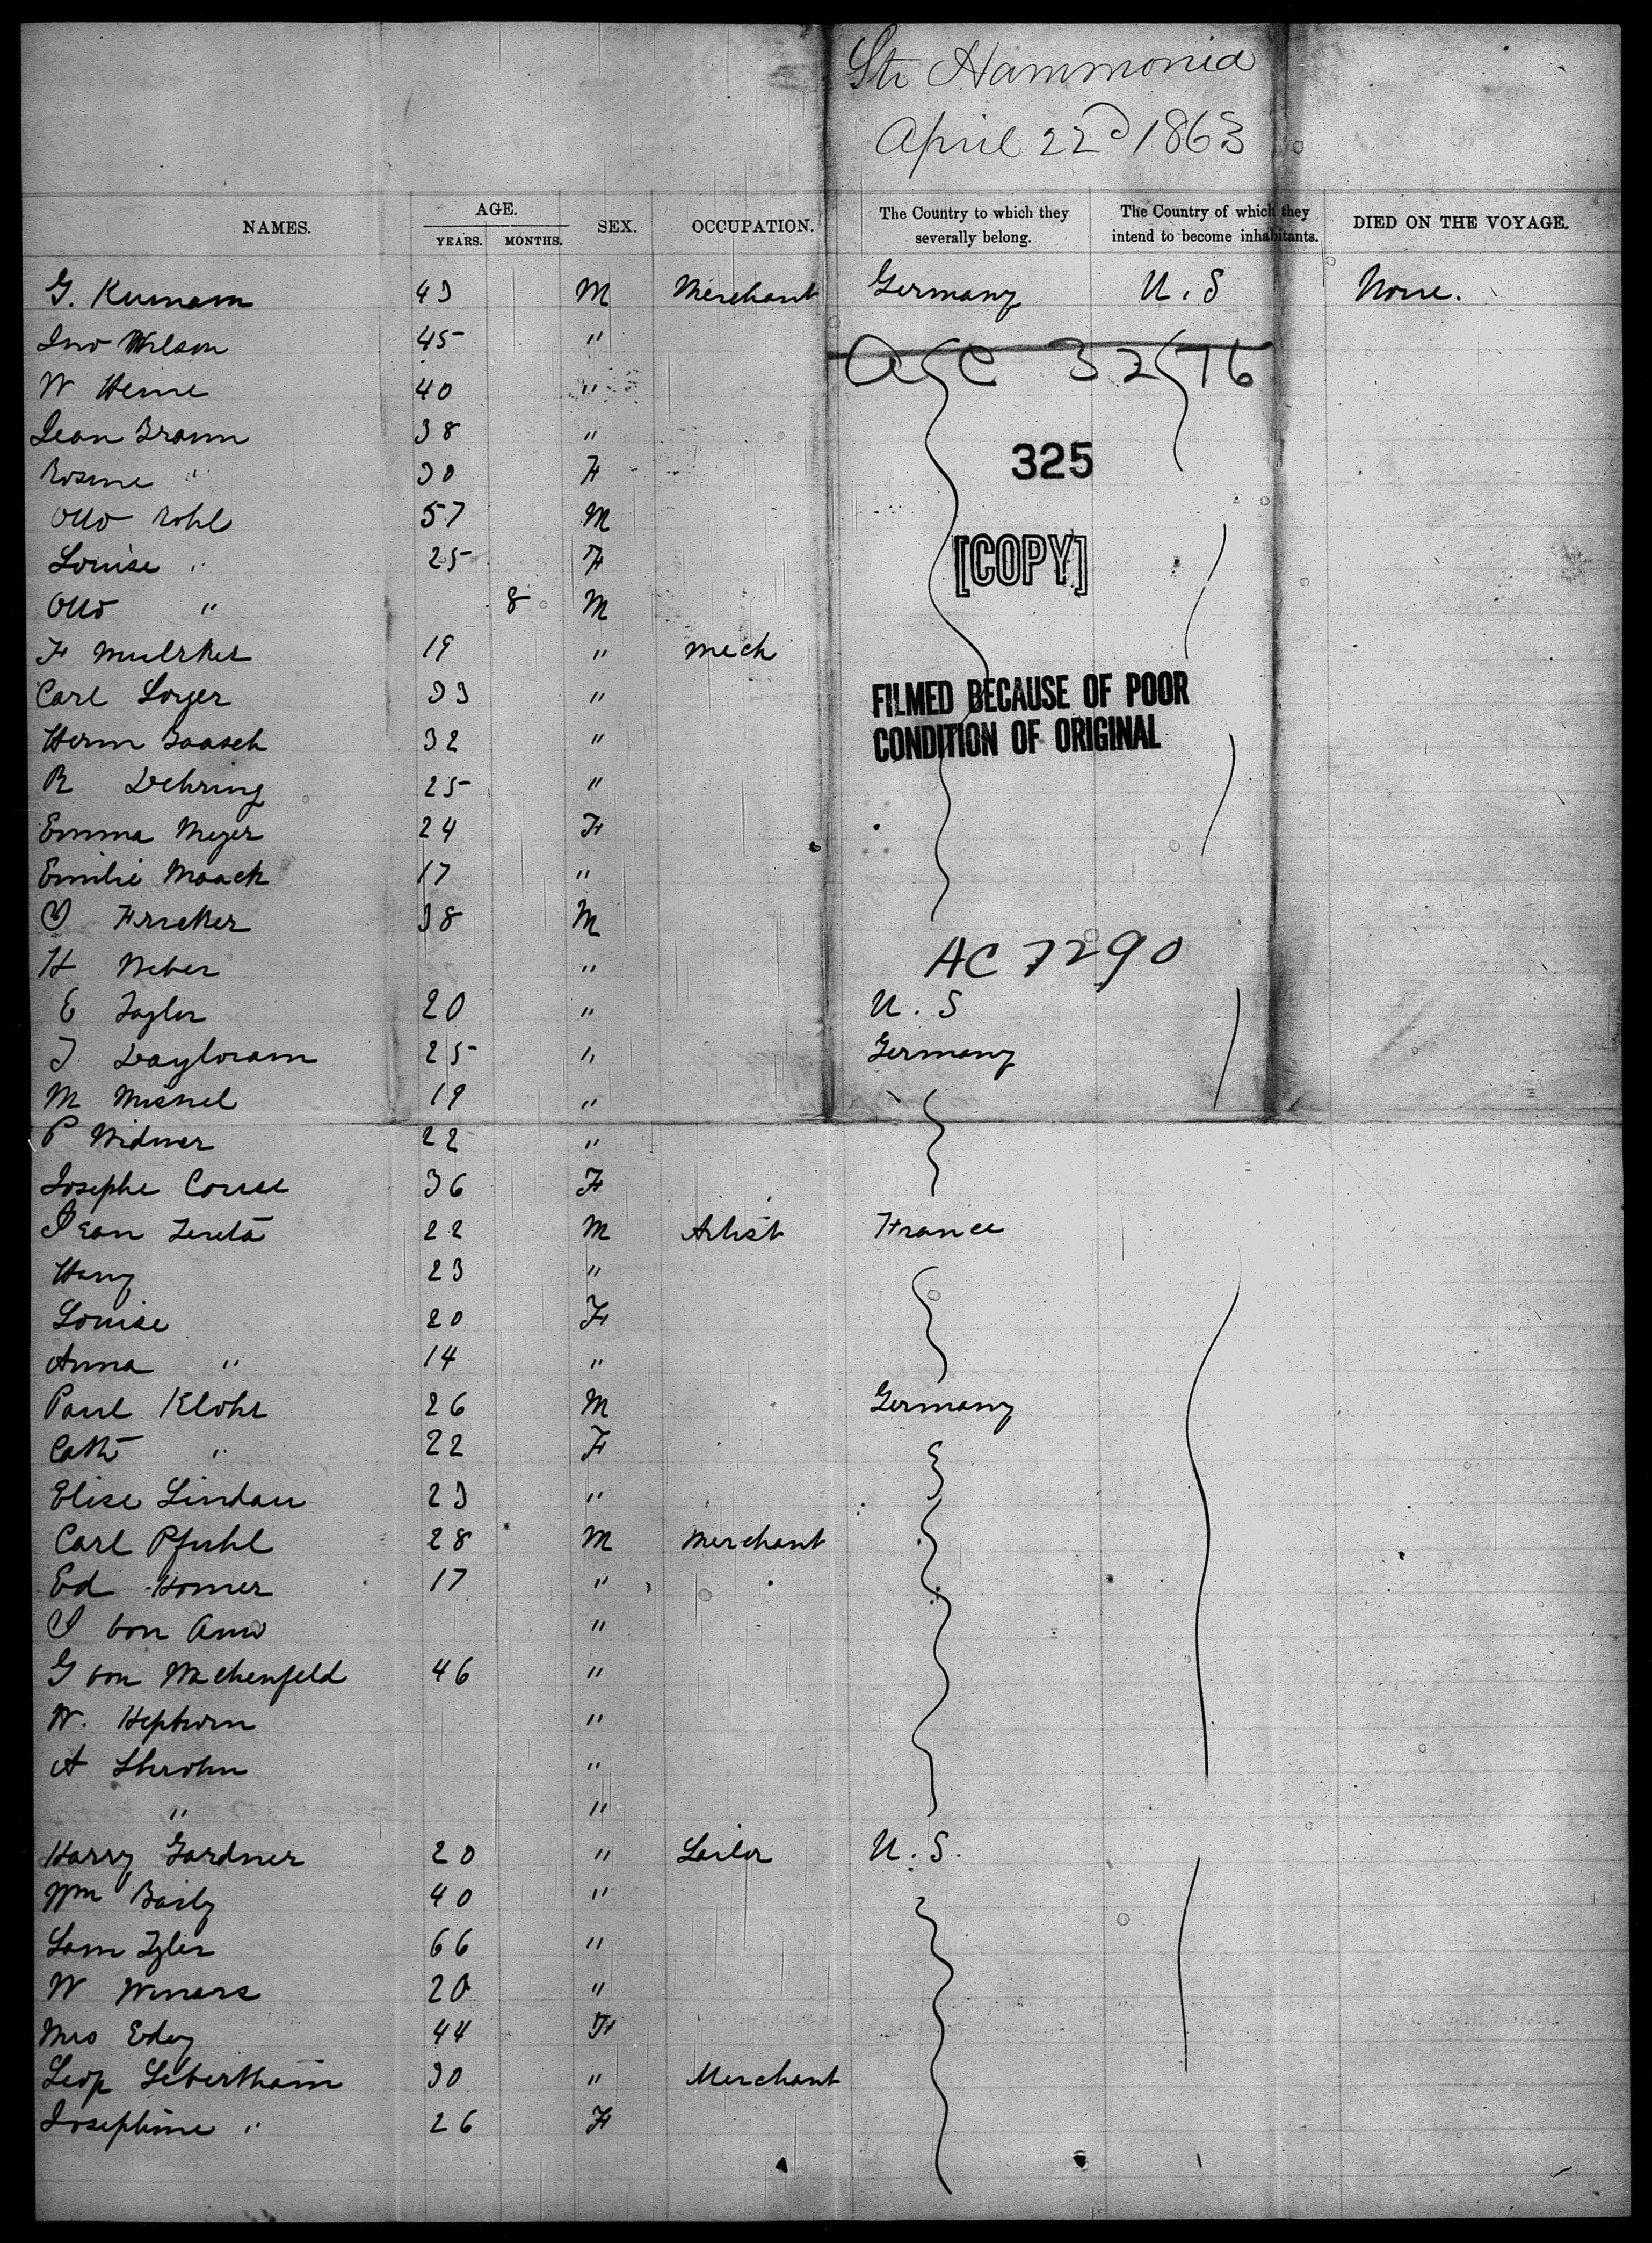 Str Hammonia
April 22d 1863
NAMES. AGE. YEARS. MONTHS. SEX. OCCUPATION. The Country to which they severally belong. The Country of which they intend to become inhabitants. DIED ON THE VOYAGE.
G. Kumam 43 M Merchant Germany U.S None.
Jno Wilson 45 "
W Heine 40 "
Jean Braun 38 "
Rosine " 30 F
Otto Rohl 57 M
Louise " 25 F
Otto " 8 M
F Mulrker 19 " Mech
Carl Loyer 33 "
Herm Baasch 32 "
R Dehring 25 "
Emma Meyer 24 F
Emilie Maack 17 "
J Fricker 38 M
H Weber "
E Taylor 20 " U.S
J Dayloram 25 " Germany
M Mishel 19 "
P Widmer 22 "
Josephe Couse 36 F
Jean Tereta 22 M Artist France
Hany 23 "
Louise 20 F
Anna " 14 "
Paul Klohr 26 M Germany
Cath " 22 F
Elise Lindau 23 "
Carl Pfuhl 28 M Merchant
Ed Homer 17 "
J von "
G von Wachenfeld 46 "
W. Hepburn "
A "
" "
Harry Gardner 20 " Sailor U.S.
Wm Baily 40 "
Sam Tyler 66 "
W Winans 20 "
Mrs Edey 44 F
Leop Lebertham 30 " Merchant
Josephine " 26 F
325
[COPY]
FILMED BECAUSE OF POOR
CONDITION OF ORIGINAL
AC 7290